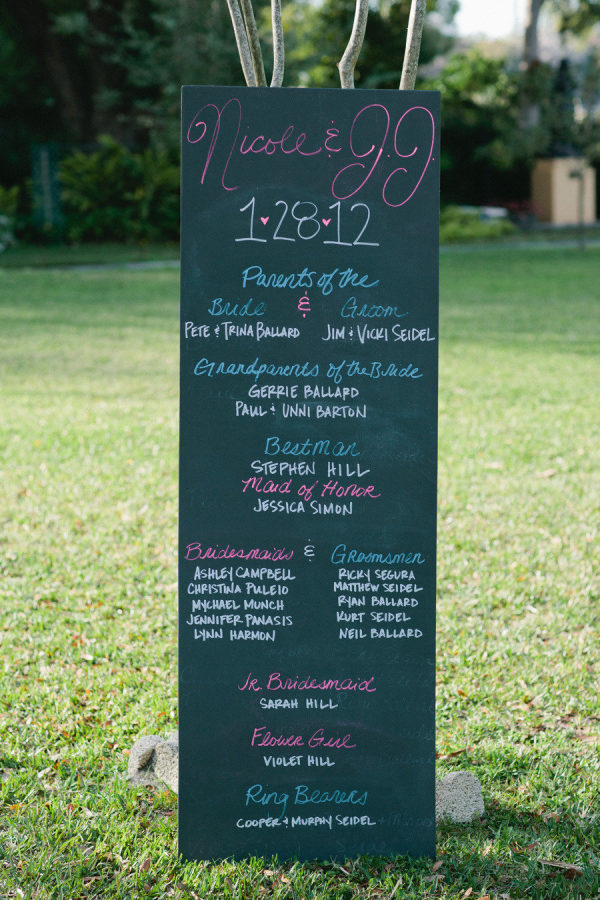 Nicole & J.J.
1♥28♥12
Parents of the
Bride & Groom
PETE & TRINA BALLARD JIM & VICKI SEIDEL
Grandparents of the Bride
GERRIE BALLARD
PAUL & UNNI BARTON
Best Man
STEPHEN HILL
Maid of Honor
JESSICA SIMON
Bridesmaids & Groomsmen
ASHLEY CAMPBELL RICKY SEGURA
CHRISTINA PULEIO MATTHEW SEIDEL
MYCHAEL MUNCH RYAN BALLARD
JENNIFER PANASIS KURT SEIDEL
LYNN HARMON NEIL BALLARD
Jr. Bridesmaid
SARAH HILL
Flower Girl
VIOLET HILL
Ring Bearers
COOPER & MURPHY SEIDEL